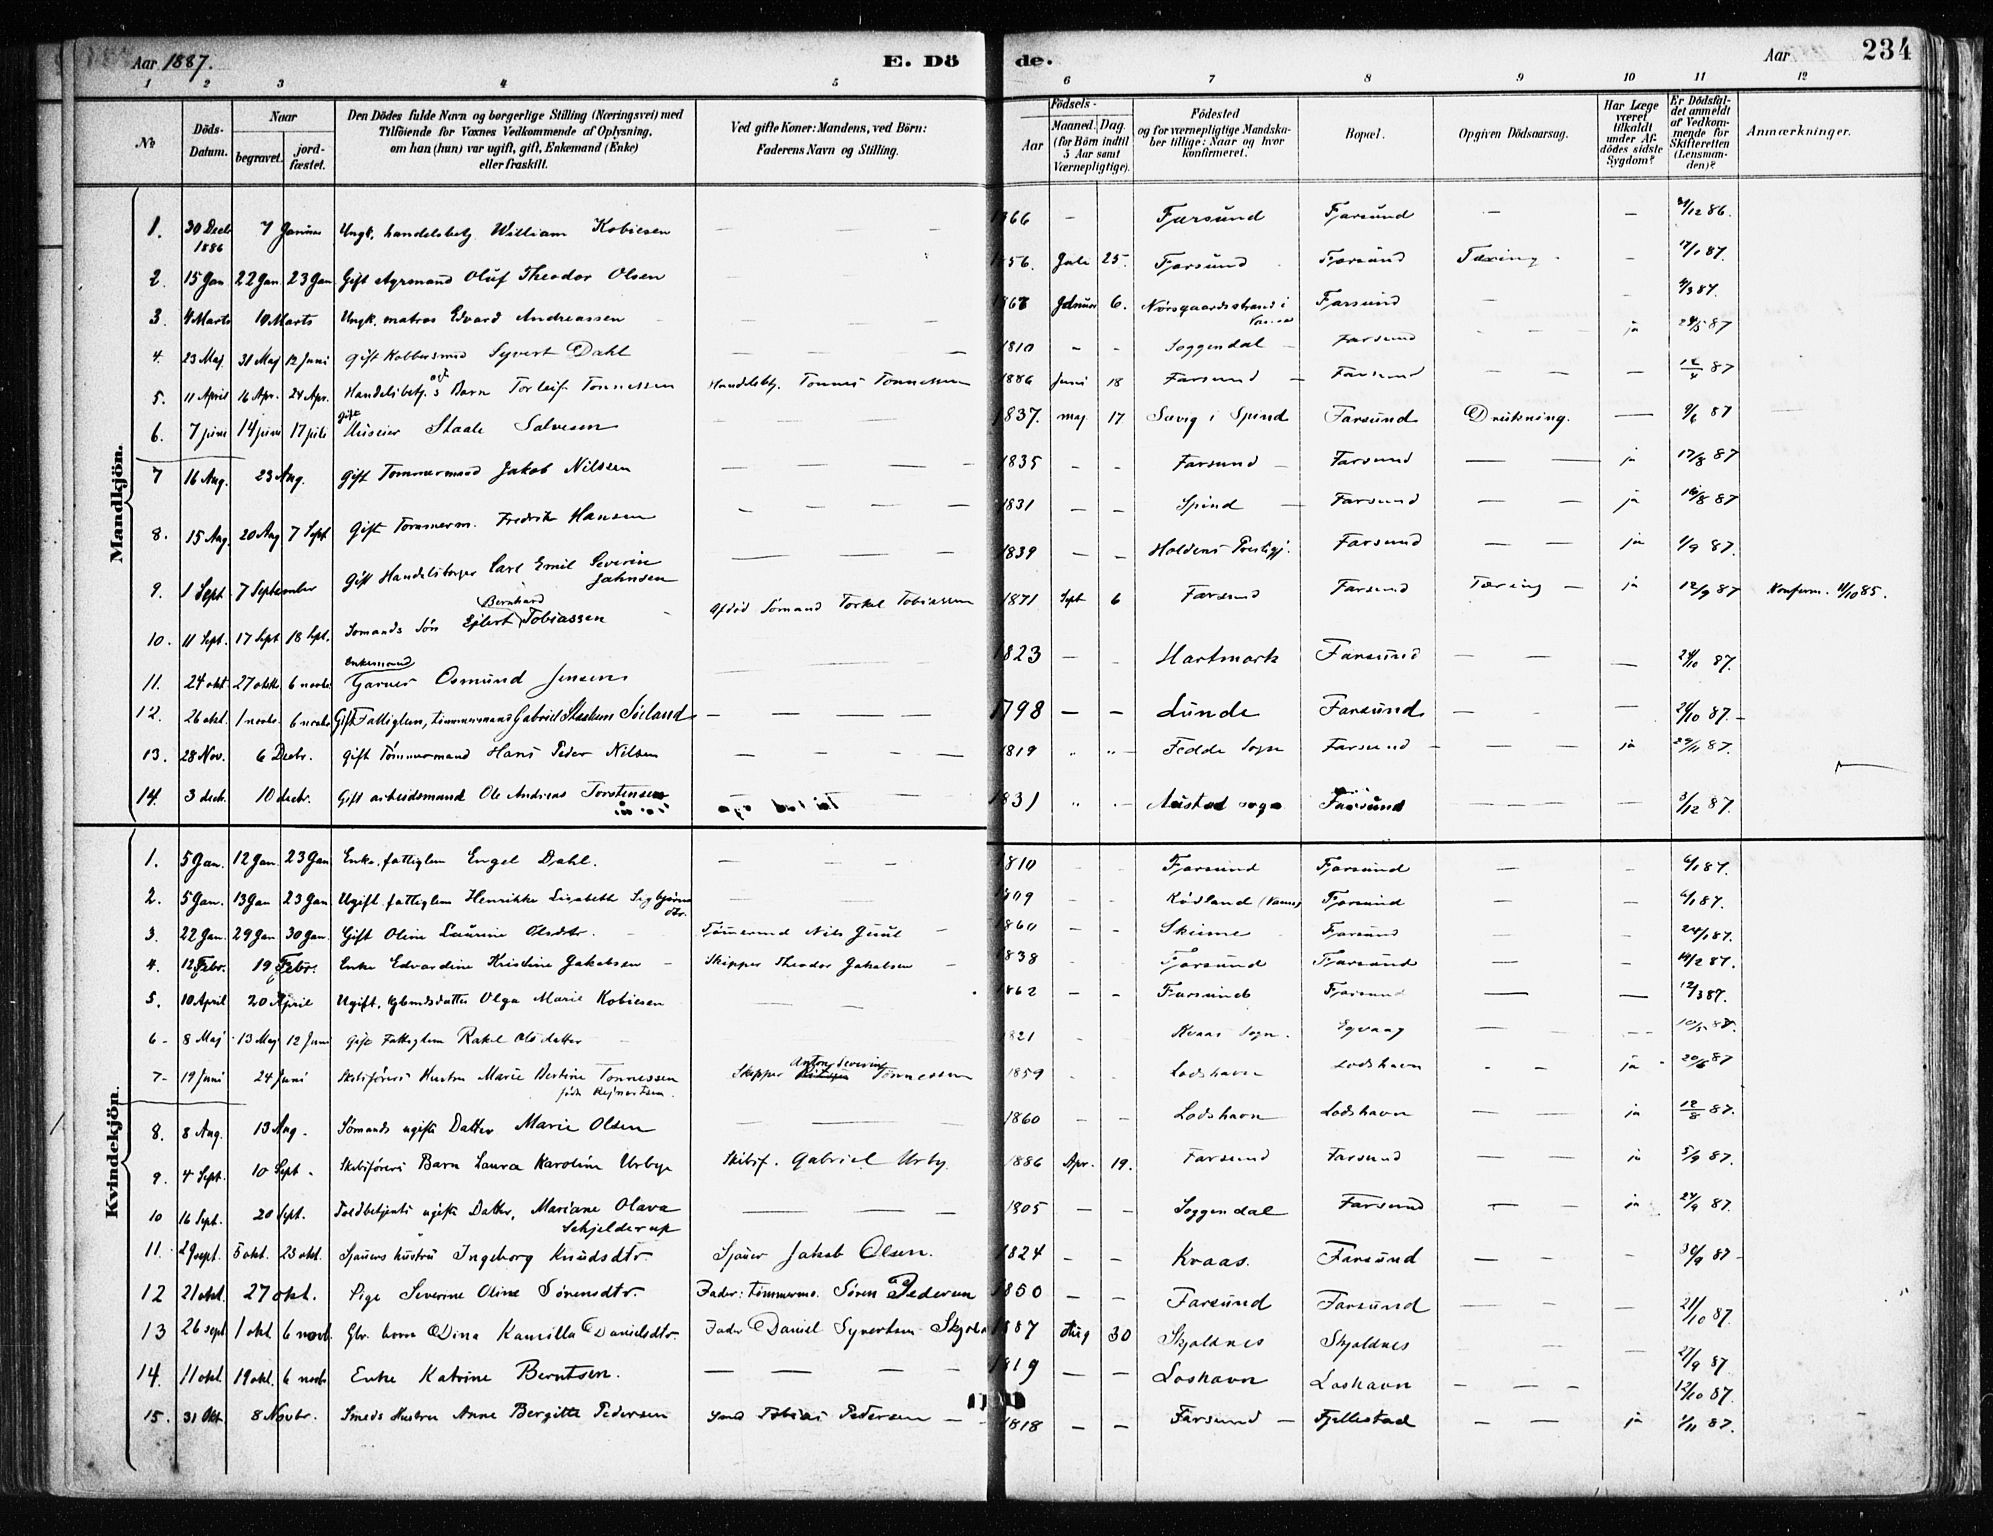 Aar 1887. E. Dö de. Aar 234
1 2 3 4 5 6 7 8 9 10 11 12
№ Döds-Datum. Naar begravet. jord-fæstet. Den Dödes fulde Navn og borgerlige Stilling (Næringsvei) med Tilföiende for Voxnes Vedkommende af Oplysning, om han (hun) var ugift, gift, Enkemand (Enke) eller fraskilt. Ved gifte Koner: Mandens, ved Börn: Faderens Navn og Stilling. Födsels- Aar Maaned. Dag. (for Börn indtil 5 Aar samt Værnepligtige). Födested og for værnepligtige Mandskaber tillige: Naar og hvor konfirmeret. Bopæl. Opgiven Dödsaarsag. Har Læge været tilkaldt under Afdödes sidste Sygdom? Er Dödsfaldet anmeldt af Vedkommende for Skifteretten (Lensmanden)? Anmærkninger.
Mandkjön.
1. 30 Decb 1886 7 Januar Ungk. handelsbetj. William Kobiesen — — — 1866 — Farsund Farsund — — 31/12 86.
2. 15 Jan 22 Jan 23 Jan Gift Oluf Theodor Olsen — — 1856. Juli 25. Farsund Farsund Tæring — 17/1 87.
3. 4 Marts 10 Marts Ungk. matros Edvard Andreassen — — 6. Nörsgaardsstrand i Vanse Farsund — — 4/3 87.
4. 23 Maj 31 Maj 12 Juni Gift Kobbersmed Syvert Dahl — — — 1810 — — Soggendal — Farsund — — ja 24/5 87
5. 11 April 16 Apr. 24 Apr. Handelsbetj.s Barn Torleif Tönnessen Handelsbtj. Tönnes Tönnessen 1886 Juni 18 Farsund — Farsund — — — 12/4 87
6. 7 juni 14 juni 17 juli gift Huseier Staale Salvesen — — 1837. maj 17 Sævig i Spind Farsund Drukning. — 9/6 87
7 16 Aug. 23 Aug. Gift Tömmermand Jakob Nilssen — — — 1835 — — Farsund — Farsund — — ja 17/8 87
8. 15 Aug. 20 Aug 7 Sept Gift Tömmerm. Fredrik Hansen — — — 1831 — — Spind — Farsund — — ja 16/8 87
9. 1 Sept 7 September Gift Handelsborger Carl Emil Severin Jahnsen — — — 1839 — — Holdens Prestgj. Farsund — — ja 1/9 87.
10. 11 Sept. 17 Sept 18 Sept. Sömands Sön Ejlert Bernhard Tobiassen Afdöd Sömand Torkel Tobiassen 1871 Sept 6 Farsund Farsund Tæring — ja 12/9 87 Konferm. 4/10 85.
11. 24 okt 27 okt 6 novbr. enkemand Garver Osmund Jensen — — — 1823 — — Hartmark Farsund — — — 24/10 87.
12. 26 okt. 1 novbr. 6 novbr Gift Fattiglem, tömmermand Gabriel Söiland — — — 1798 — — Lunde Farsund — — 26/10 87.
13. 28 Nov. 6 Decbr. Gift Tömmermand Hans Peder Nilsen — — — 1819 " " Fedde Sogn Farsund — — ja 29/11 87.
14. 3 decb. 10 decbr. Gift arbeidsmand Ole Andreas Torstensen 1831 " Austad sogn Farsund — — — 3/12 87.
Kvindekjön.
1. 5 Jan. 12 Jan. 23 Jan Enke, fattiglem Engel Dahl. — — — 1810 — Farsund Farsund — — 6/1 87.
2. 5 Jan. 13 Jan 23 Jan Ugift fattiglem Henrikke Lisabeth Sigbjörnsdtr. — — Rödland (Vanse) Farsund — — 6/1 87.
3. 22 Jan. 29 Jan 30 Jan. Gift Oline Laurine Olsdtr. Tömermd Nils Juul 1860 — — Skeime Farsund — — 24/1 87.
4. 12 Febr. 19 Febr. Enke Edvardine Kristine Jakobsen Skipper Theodor Jakobsen 1838 Farsund Farsund — — 14/2 87.
5. 10 April 20 April Ugift, datter Olga Marie Kobiesen — — 1862 — — Farsund Farsund — — 12/3 87.
6. 8 Maj 13 Maj 12 Juni Gift Fattiglem Rakel Olsdatter — 1821 Kvaas Sogn. Egvaag — — 10/5 87.
7. 19 Juni 24 Juni Skibsförers Hustru Marie Tönnessen föda Rejnertsen. Skipper Anton Severin Tönnessen 1859 Lodshavn Lodshavn - - ja 20/6 87
8. 8 Aug. 13 Aug. Sömands ugifte Datter Marie Olsen — — — 1860 — — Lodshavn Lodshavn — — ja 12/8 87.
9. 4 Sept. 10 Sept. Skibsförers Barn Laura Karoline Urbye Skibsf. Gabriel Urby 1886 Apr. 19. Farsund Farsund — — ja 5/9 87.
10 16 Sept. 20 Sept. Toldbetjents ugifte Datter, Mariane Olava Schjelderup — — — 1805 — — Soggendal Farsund — — ja 24/9 87.
11. 29 sept. 5 okt. 23 okt. Sjauers hustru Ingeborg Knudsdtr. Sjauer Jakob Olsen. 1824 — — Kvaas. Farsund — — — 30/9 87
12 21 okt. 27 okt. Pige Severine Oline Sörensdtr. Fader: tömmerm. Sören Pedersen 1850 — — Farsund Farsund — — — 21/10 87.
13 26 sept 1 okt 6 novb. Gbr. barn Dina Kamilla Danielsdtr. Fader Daniel Syvertsen 1887 Aug 30 Skjoldnes Skjoldnes — 27/9 87.
14. 11 okt. 19 okt. 6 novbr Enke Katrine Berntsen. — — — 1819 — — Loshavn Loshavn — — 12/10 87.
15. 31 Okt. 8 Novbr. Smeds Hustru Anne Bergitte Pedersen Smd Tobias Pedersen — 1818 — — Farsund — Fjellestad — — ja 1/11 87.